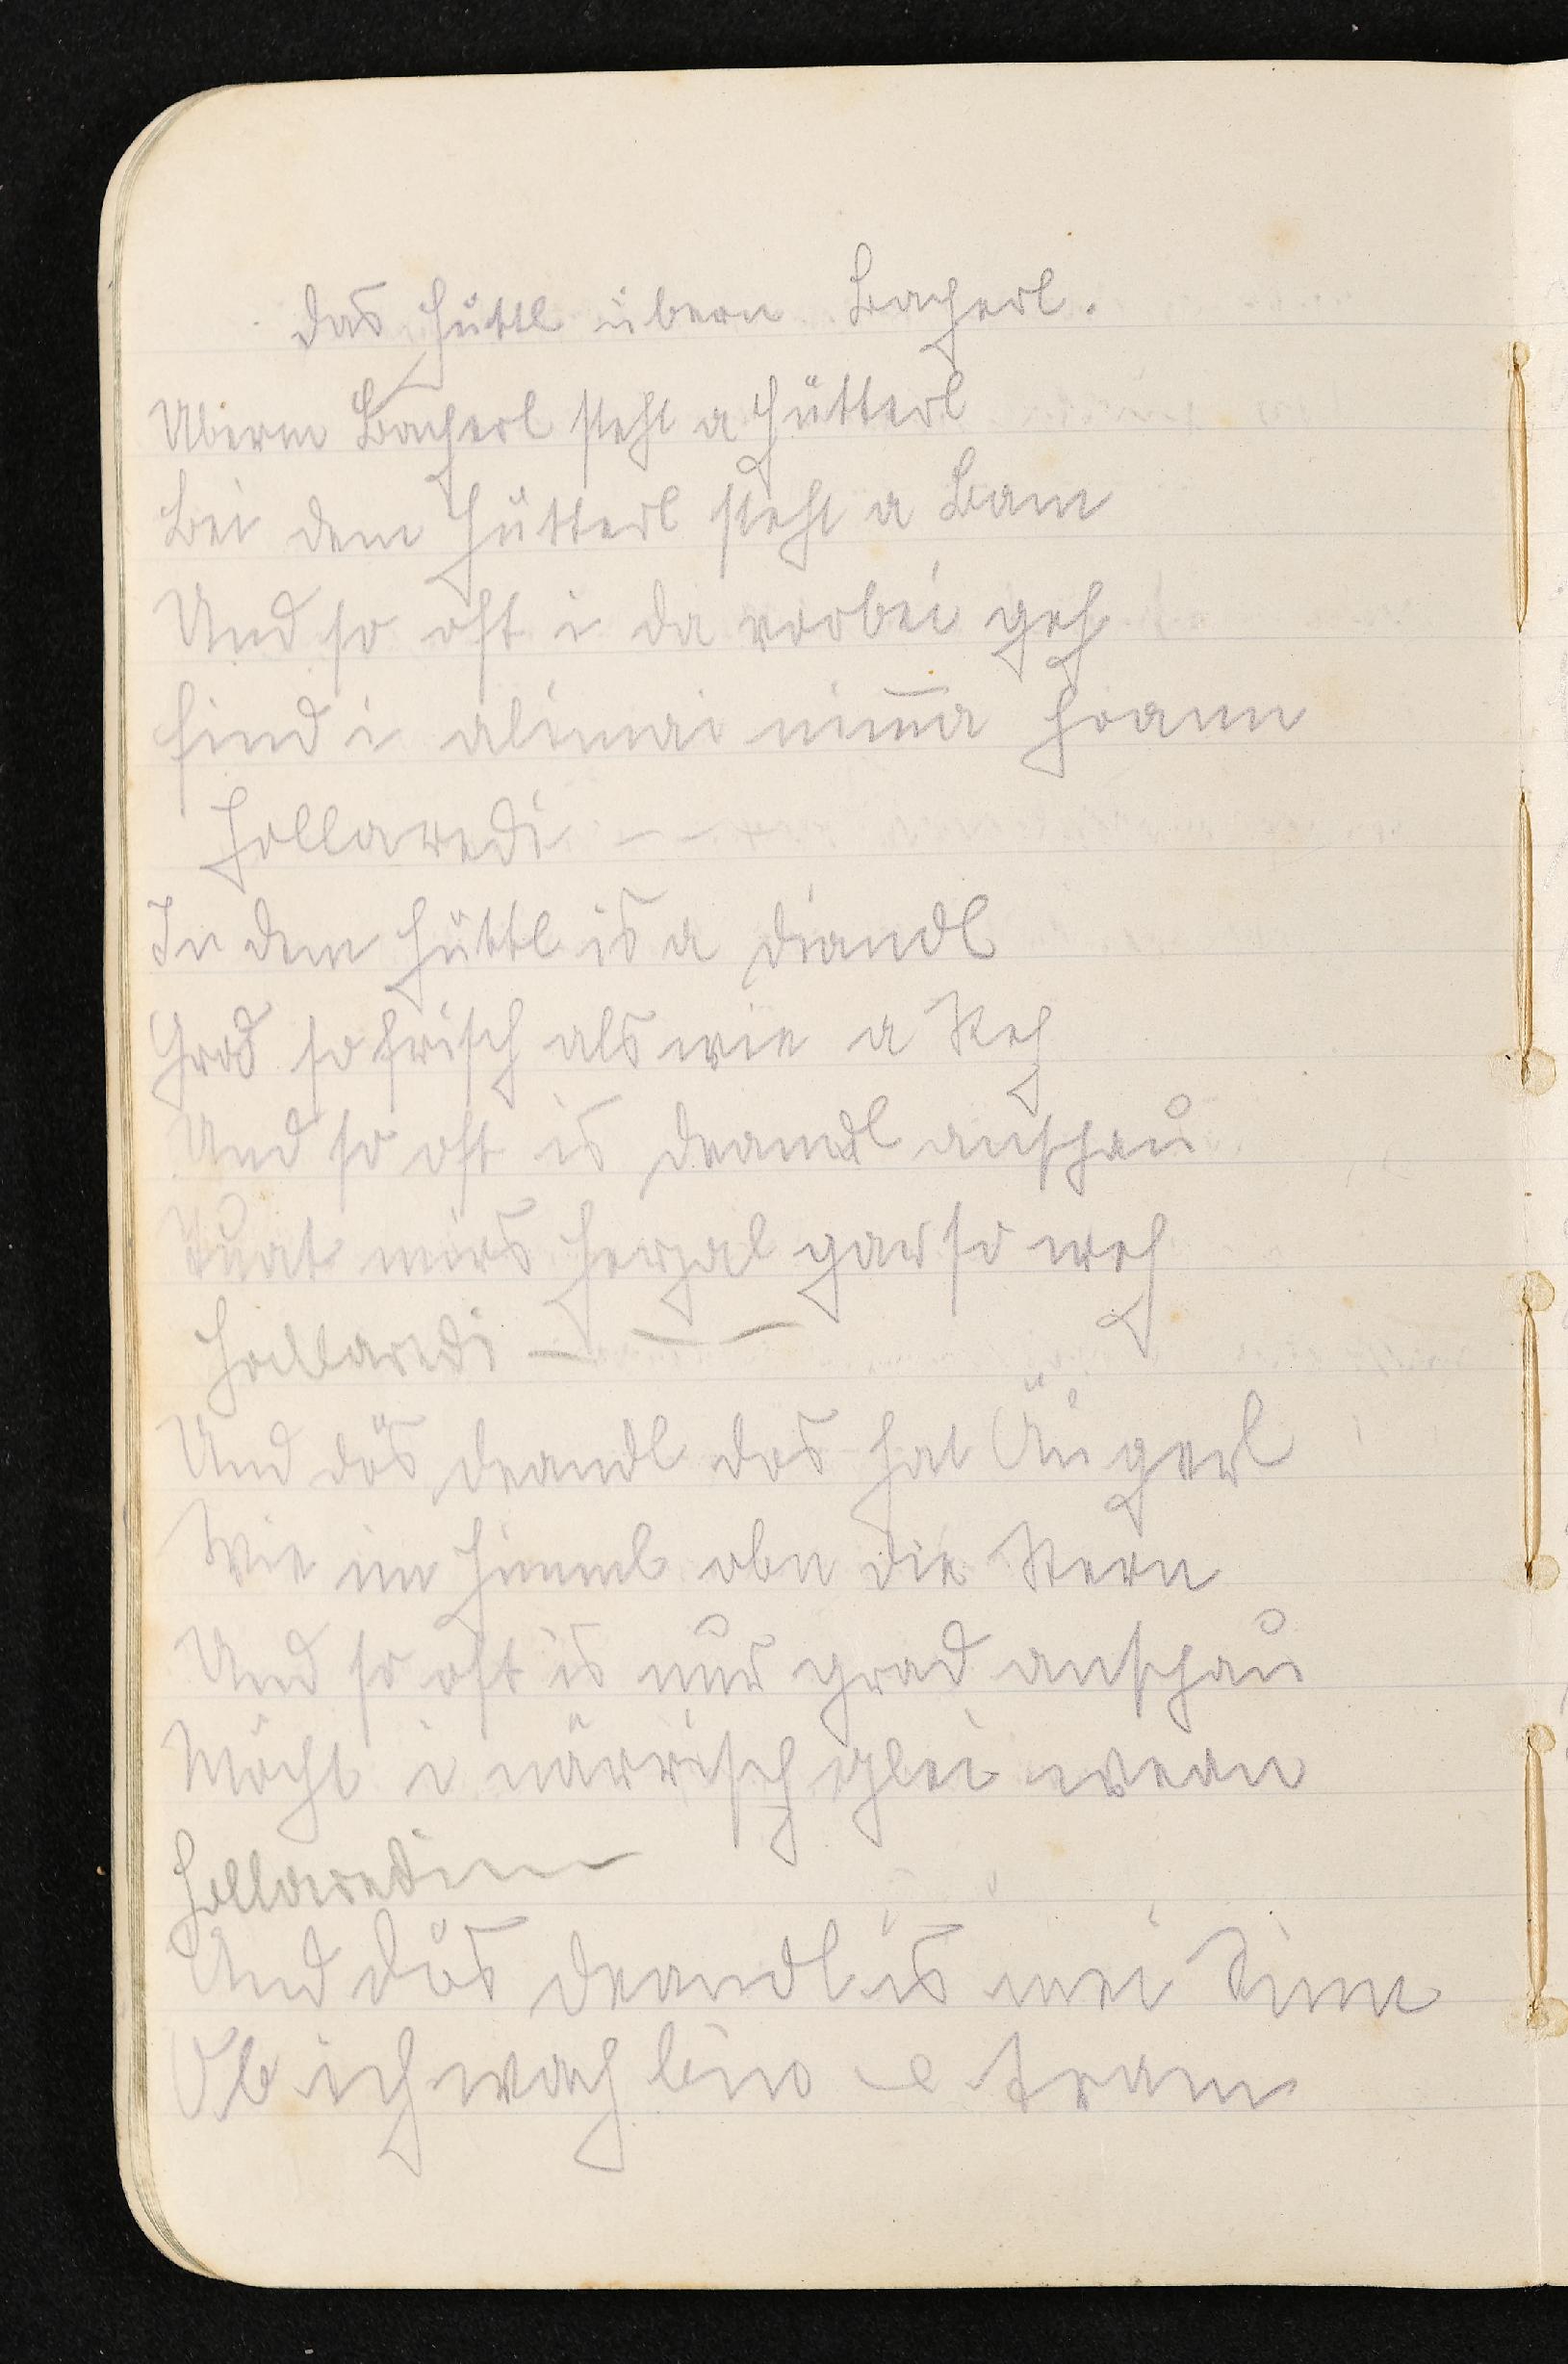 Das Hüttl übern Bacherl.
Uberm Bacherl steht a Hütterl
Bei dem Hütterl steht a Bam
Und so oft i da vorbei geh
find i alimai nimma hoamm
Hollaredi - -
In dem Hüttl is a Diandl
Grad so frisch als wie a Reh
Und so oft is Deandl anschau
Tuat mirs Herzal gar so weh
Hollaredi - - -
Und dös Deandl das hat Äugerl
Wie im Himml obn die Stern
Und so oft is nur grad anschau
Möcht i närrisch glei wean
Hollaredi - -
Und dös Deandl is mei Sinn
Ob ich wach bin o tram